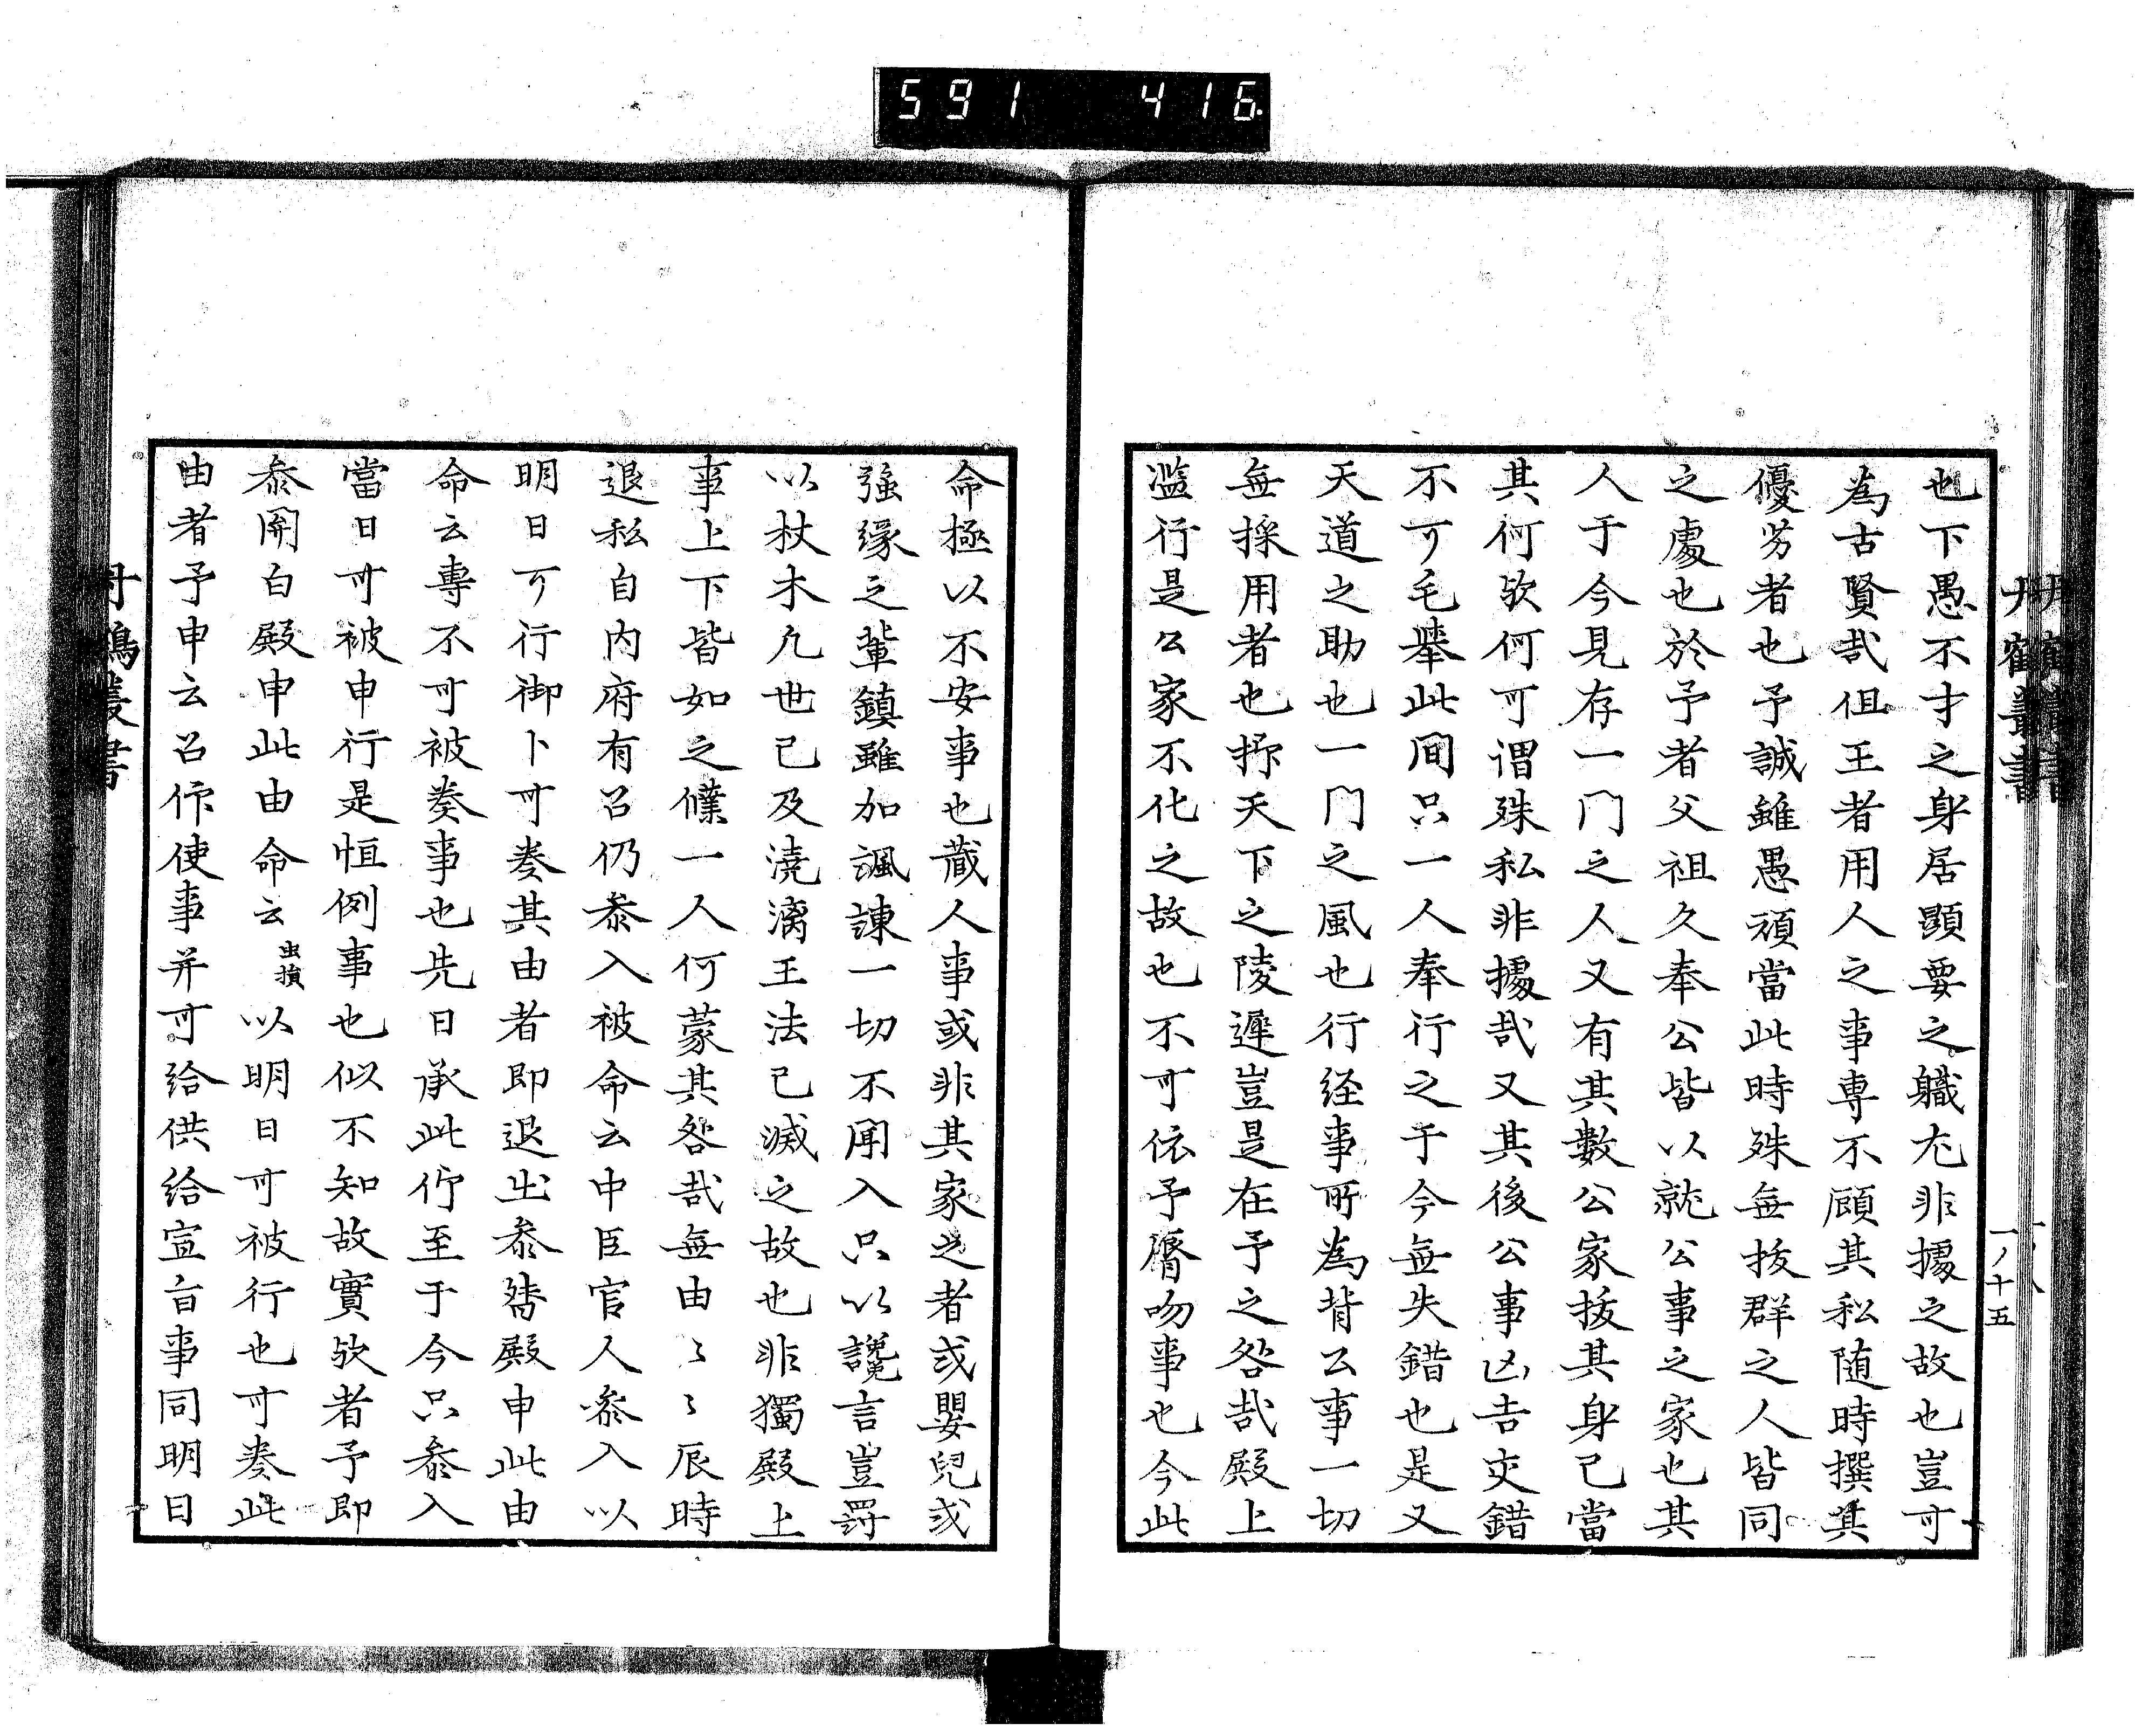 591 416
丹鶴叢書
一ノ十五
也下愚不才之身居顕要之職尤非據之故也豈可
為古賢哉但王者用人之事専不顧其私随時撰其
優劣者也予誠雖愚頑當此時殊無抜群之人皆同
之處也於予者父祖久奉公皆以就公事之家也其
人于今見存一門之人又有其數公家抜其身已當
其何欤何可謂殊私非據哉又其後公事凶吉吏錯
不可毛擧此間只一人奉行之于今無失錯也是又
天道之助也一門之風也行経事所為背公事一切
無採用者也抑天下之陵遅豈是在予之咎哉殿上
濫行是公家不化之故也不可依予脣吻事也今此
命極以不安事也蔵人事或非其家之者或嬰兒或
強縁之輩鎮雖加諷諌一切不聞入只以讒言豈罸
以杖木凡世已及澆漓王法已滅之故也非獨殿上
事上下皆如之僕一人何蒙其咎哉無由〻〻辰時
退私自内府有召仍参入被命云中臣官人参入以
明日可行御卜可奏其由者即退出参殿申此由
命云專不可被奏事也先日承此仰至于今只参入
當日可被申行是恒例事也似不知故實欤者予即
参関白殿申此由命云虫損以明日可被行也可奏此
由者予申云召仰使事并可給供給宣旨事同明日
丹鶴叢書